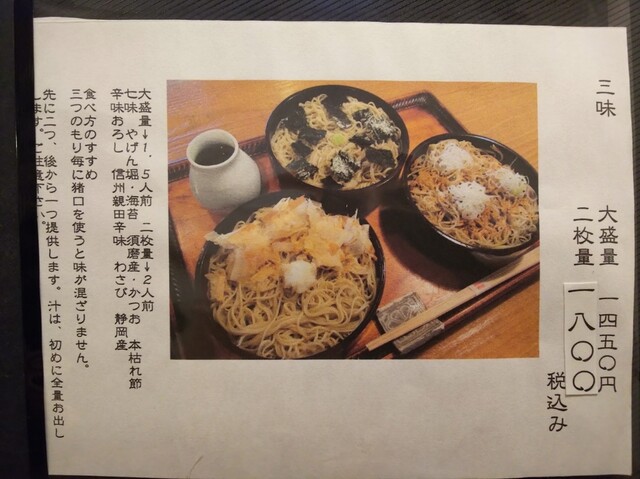 三味
大盛量 一四五〇円
二枚量 一八〇〇
税込み
大盛量↓1.5人前 二枚量↓2人前
七味 やげん堀・海苔 須磨産・かつお 本枯れ節
辛味おろし 信州親田辛味 わさび 静岡産
食べ方のすすめ
三つのもり毎に猪口を使うと味が混ざりません。
先に二つ、後から一つ提供します。汁は、初めに全量お出し
します。ご注意下さい。